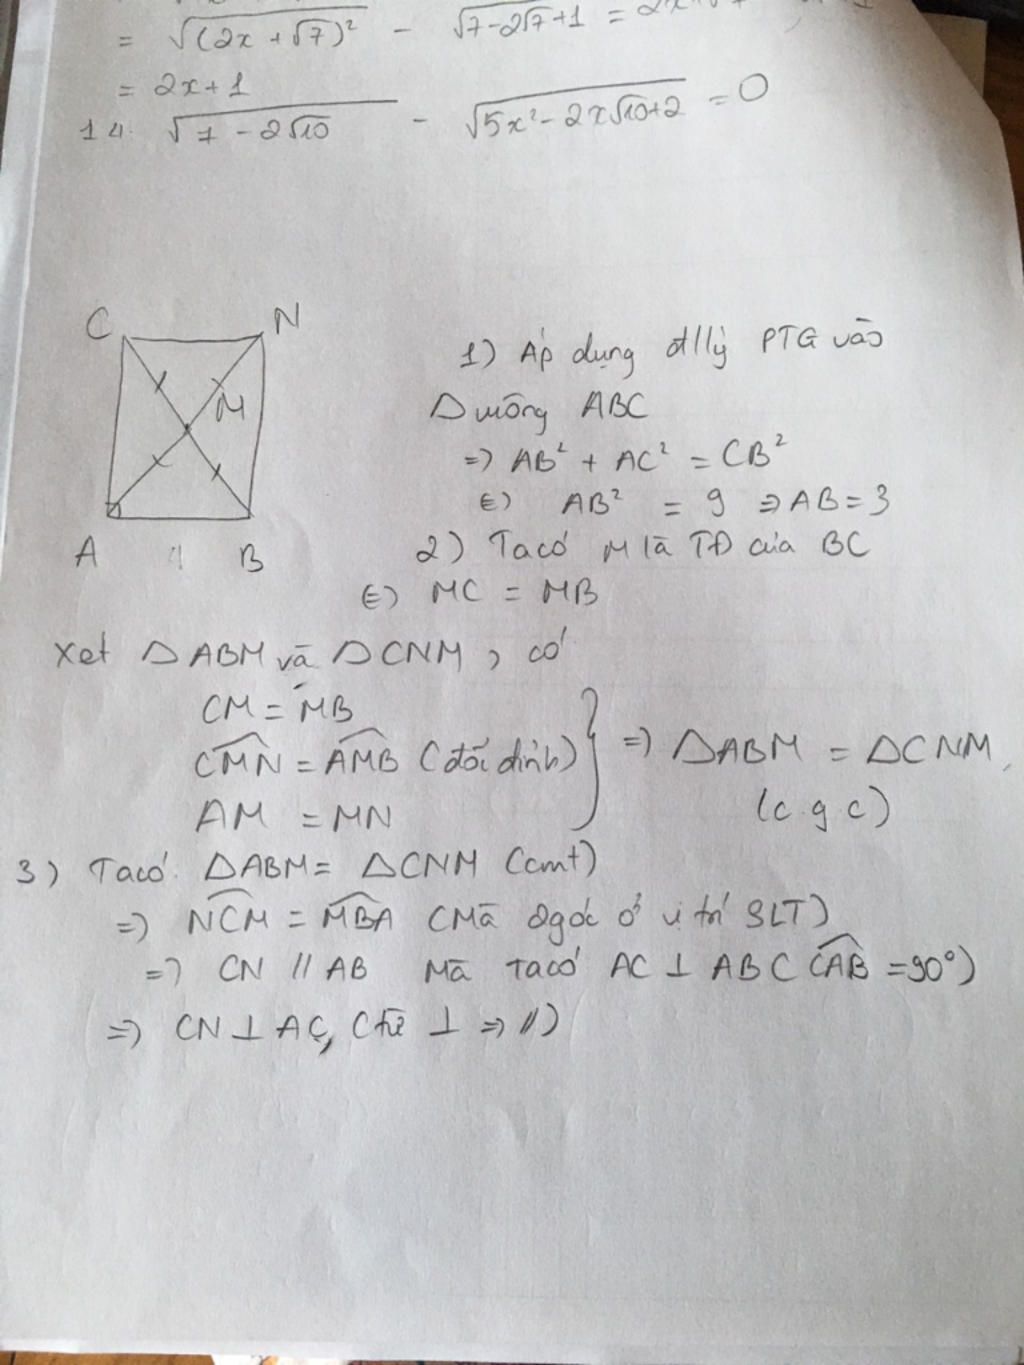 = √(2x + √7)² - √7-2√7+1 = 2x
= 2x+1
14. √7 - 2√10 - √5x² - 2x√10+2 = 0
C N
M
A B
1) Áp dụng đ/lý PTG vào
Δ vuông ABC
=> AB² + AC² = CB²
<=> AB² = 9 => AB = 3
2) Ta có M là TĐ của BC
<=> MC = MB
Xét ΔABM và ΔCNM, có
CM = MB
CMN = AMB (đối đỉnh)
AM = MN
=> ΔABM = ΔCNM
(c.g.c)
3) Ta có ΔABM = ΔCNM (cmt)
=> NCM = MBA (Mà 2 góc ở vị trí SLT)
=> CN // AB Mà ta có AC ⊥ AB (CAB = 90°)
=> CN ⊥ AC, (từ ⊥ => //)